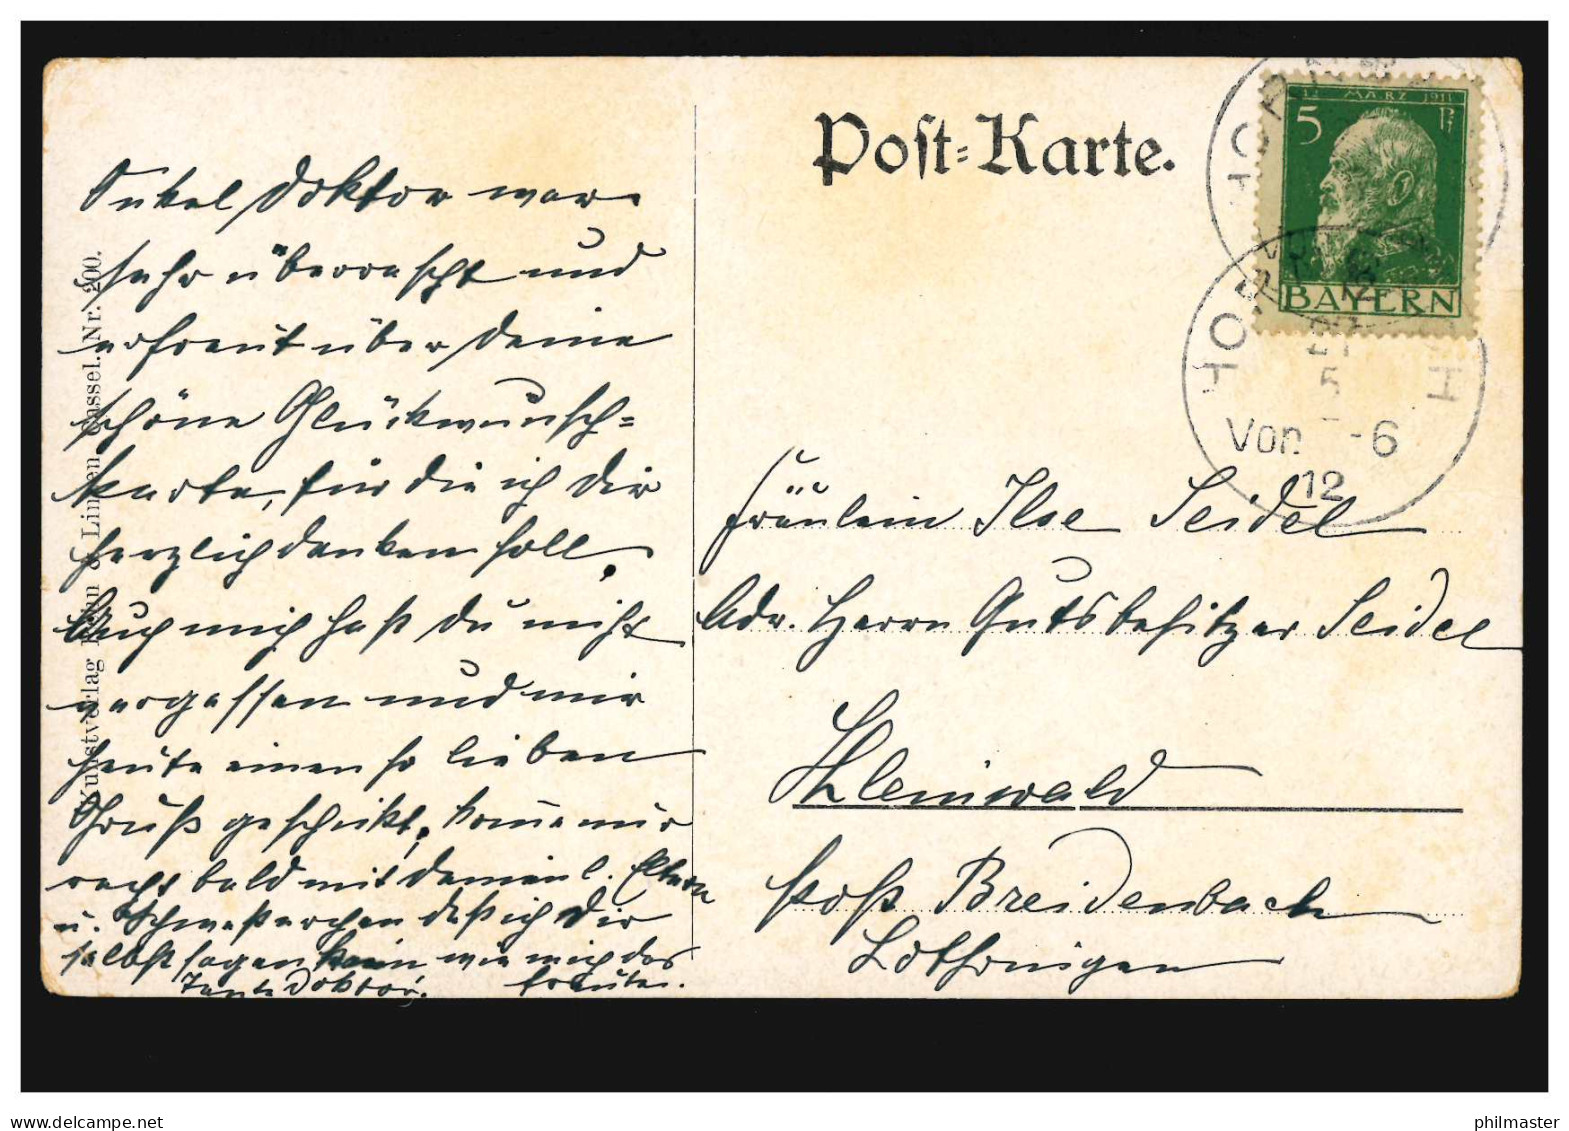 Post-Karte.
12 MÄRZ 1911
5 Pf
BAYERN
Vor. -6
12
Onkel Doktor war
sehr überrascht und
erfreut über Deine
schöne Glückwunsch=
karte, für die ich Dir
herzlich danken soll.
Auch mich hast Du nicht
vergessen und mir
heute einen so lieben
Gruß geschickt, komme nur
recht bald mit Deinen l. Eltern
u. Schwesterchen daß ich Dir
selbst sagen kann wie mich das
freute.
Tante Doktor.
Kunstverlag & Cassel. Nr. 200.
Fräulein Ilse Seidel
Adr. Herrn Gutsbesitzer Seidel
Kleinwald
Post Breidenbach
Lothringen
philmaster